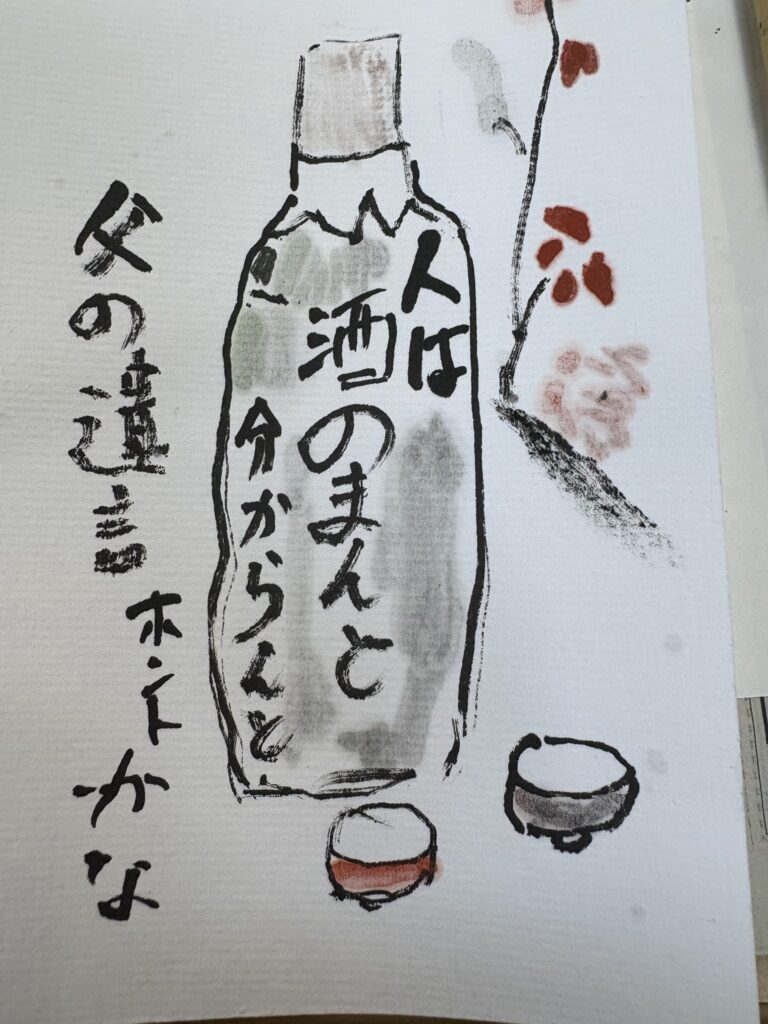 人は
酒のまんと
分からんと
父の遺言
ホントかな